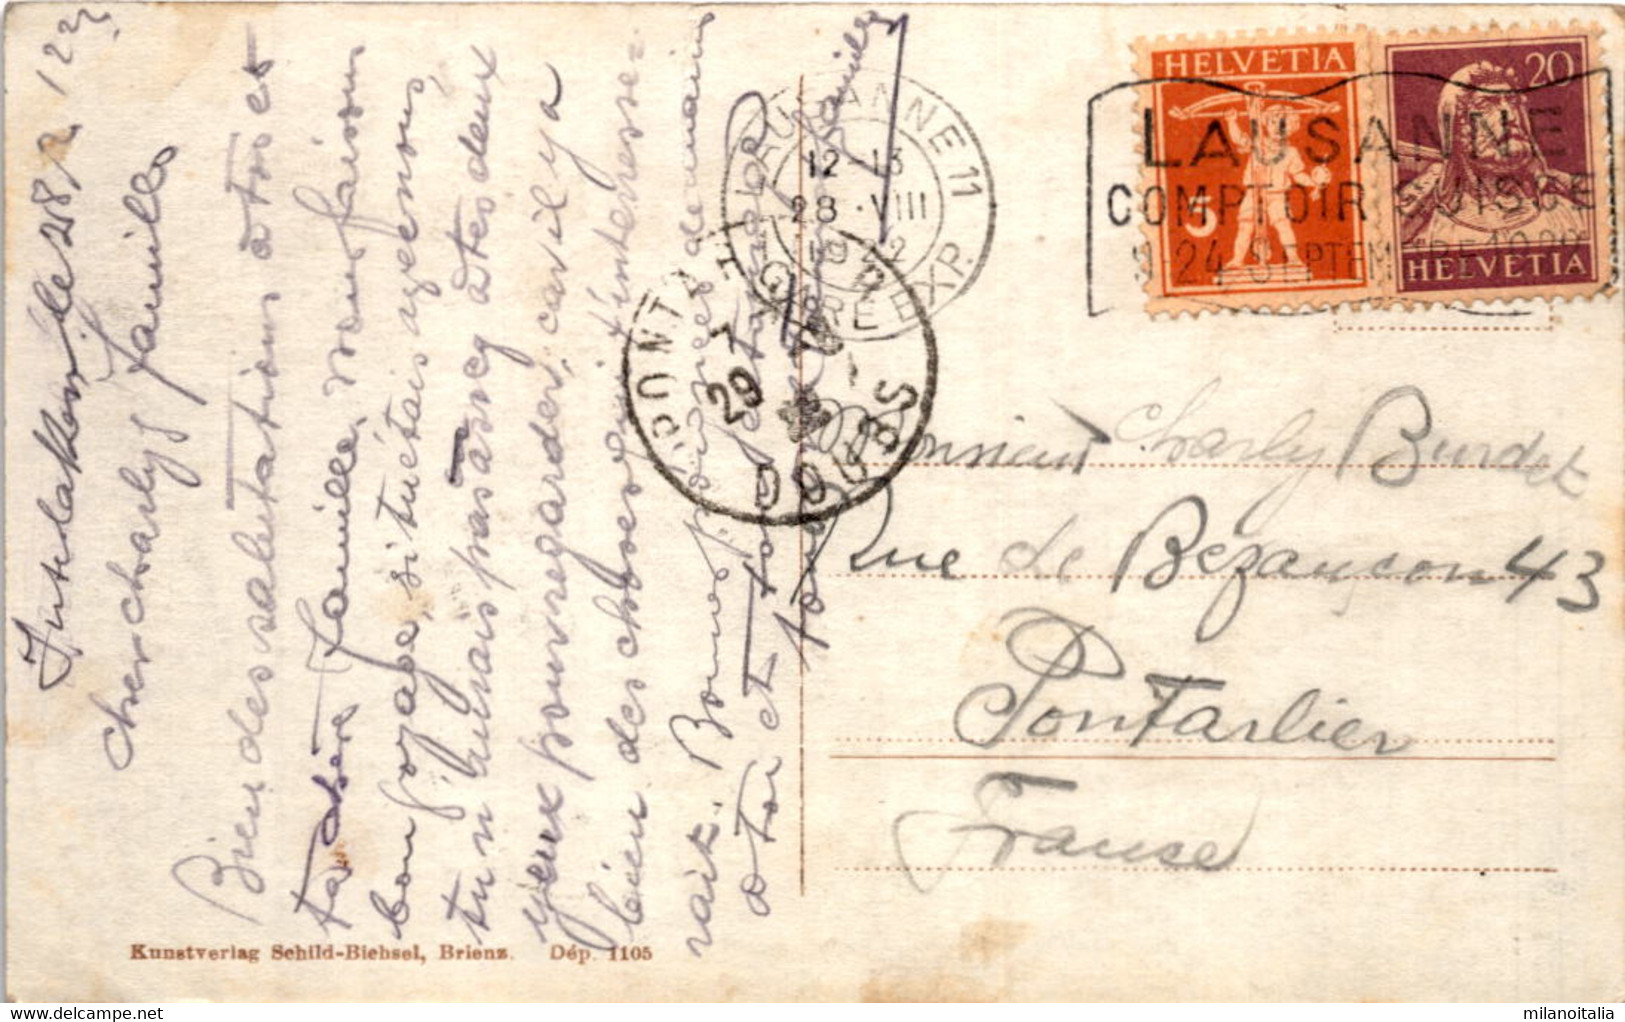 Interlaken, le 28/ 12
cher charly & famille
Bien des salutations à toi et
ta chère famille, nous faisons
bon voyage, si tu étais avec nous,
tu n'aurais pas assez de tes deux
yeux pour regarder, car il y a
bien des choses qui t'interesse-
rait. Bonnes
à toi et ta
famille
HELVETIA
5
20
HELVETIA
LAUSANNE
COMPTOIR SUISSE
9 24 SEPTEMBRE 1922
LAUSANNE 11
12-13
28.VIII
1922
EXP.
PONTARLIER
29
DOUBS
Monsieur Charly Burdet
Rue de Bezançon 43
Pontarlier
Franse
Kunstverlag Schild-Biehsel, Brienz. Dép. 1105
milanoitalia